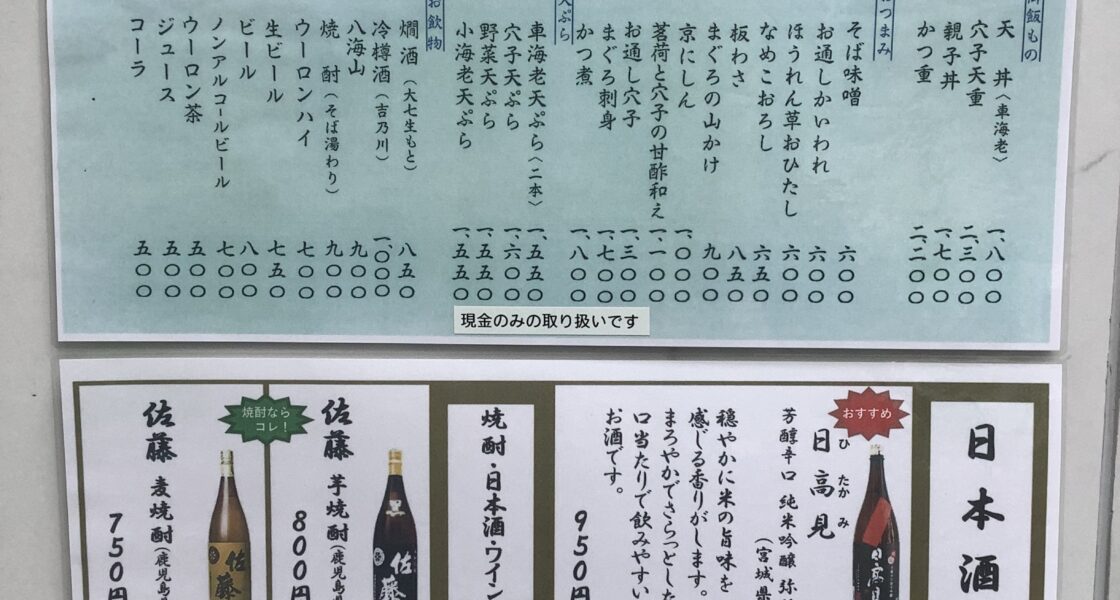 飯もの
天丼（車海老） 一、八〇〇
穴子天重 二、三〇〇
親子丼 一、七〇〇
かつ重 二、二〇〇
つまみ
そば味噌 六〇〇
お通しかいわれ 六〇〇
ほうれん草おひたし 六〇〇
なめこおろし 六五〇
板わさ 八五〇
まぐろの山かけ 九〇〇
京にしん 一、〇〇〇
茗荷と穴子の甘酢和え 一、一〇〇
お通し穴子 一、三〇〇
まぐろ刺身 一、七〇〇
かつ煮 一、八〇〇
天ぷら
車海老天ぷら（二本） 一、五五〇
穴子天ぷら 一、六〇〇
野菜天ぷら 一、五五〇
小海老天ぷら 一、五五〇
お飲物
燗酒（大七生もと） 八五〇
冷樽酒（吉乃川） 一、〇〇〇
八海山 九〇〇
焼酎（そば湯わり） 九〇〇
ウーロンハイ 七〇〇
生ビール 七五〇
ビール 八〇〇
ノンアルコールビール 七〇〇
ウーロン茶 五〇〇
ジュース 五〇〇
コーラ 五〇〇
現金のみの取り扱いです
日本酒
おすすめ
日高見
ひたかみ
芳醇辛口 純米吟醸 弥
（宮城県
穏やかに米の旨味を
感じる香りがします。
まろやかでさらっとした
口当たりで飲みやすい
お酒です。
950円
日高見
焼酎・日本酒・ワイン
佐藤
芋焼酎（鹿児島県
800円
黒
佐藤
焼酎なら
コレ！
佐藤
麦焼酎（鹿児島県
750円
佐藤